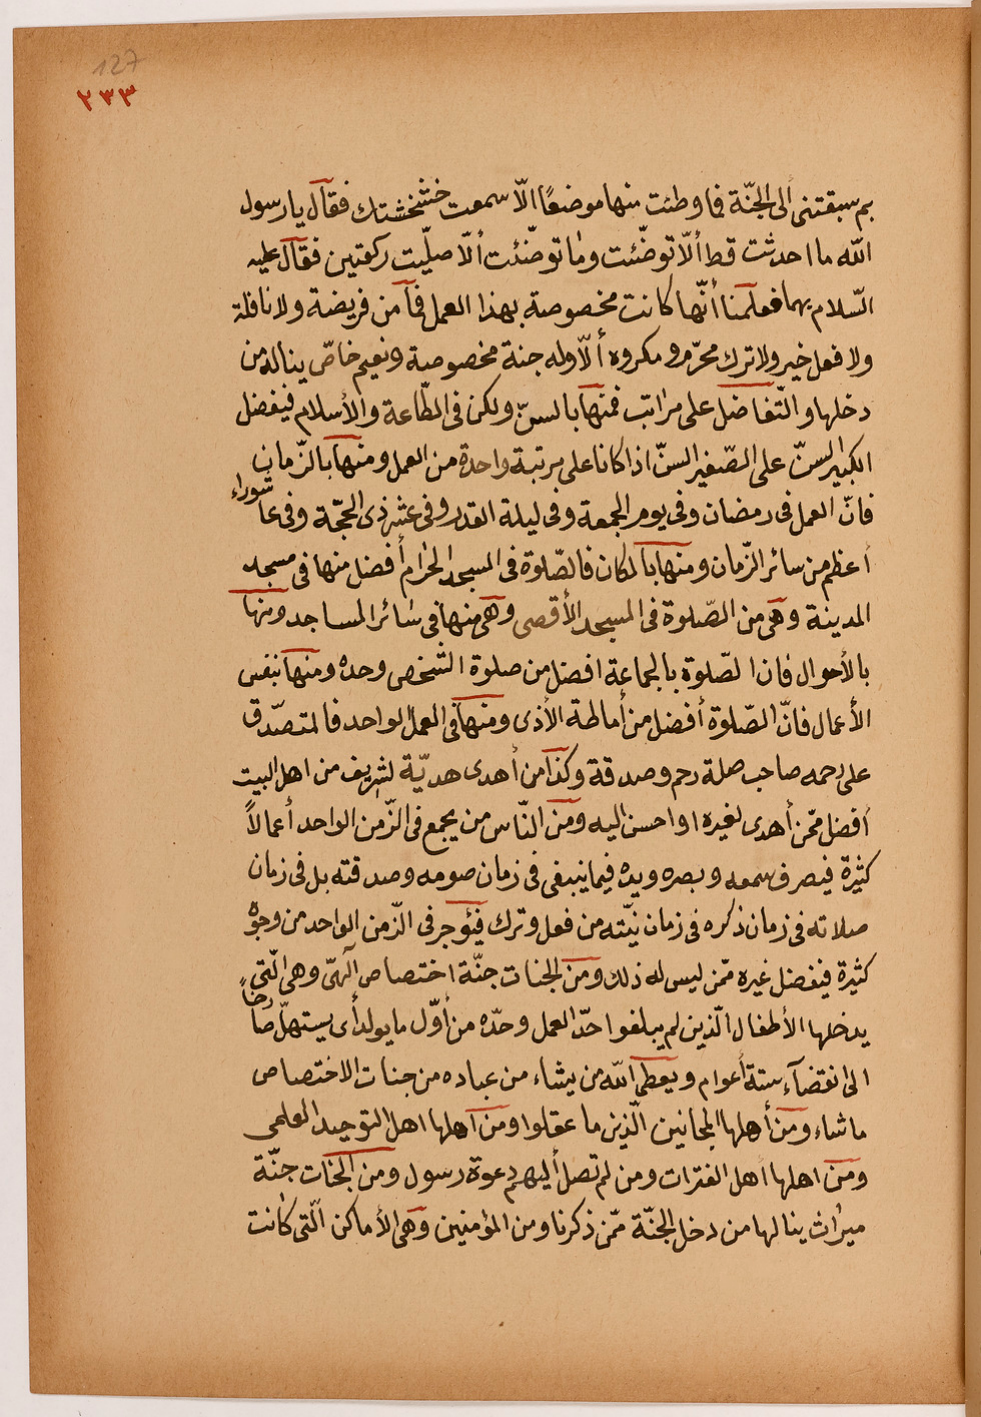 127
٢٣٣
بم سبقتنى الى الجنّة فما وطئت منها موضعًا الّا سمعت خشخشتك فقال يا رسول
الله ما احدثت قط ألّا توضّئت وما توضّئت ألّا صلّيت ركعتين فقال عليه
السّلام بهما فعلمنا أنّها كانت مخصوصة بهذا العمل فما من فريضة ولا نافلة
ولا فعل خير ولا ترك محرّم و مكروه ألّا وله جنة مخصوصة ونعيم خاصّ يناله من
دخلها والتّفاضل على مراتب فمنها بالسنّ ولكن فى الطّاعة والأسلام فيفضل
الكبير السنّ على الصّغير السنّ اذا كانا على مرتبة واحدة من العمل ومنها بالزّمان
فانّ العمل فى رمضان وفى يوم الجمعة وفى ليلة القدر وفى عشر ذى الحجّة وفى عاشوراء
أعظم من سائر الزّمان ومنها بالمكان فالصّلوة فى المسجد الحرام أفضل منها فى مسجد
المدينة وهى من الصّلوة فى المسجد الأقصى وهى منها فى سائر المساجد ومنها
بالأحوال فان الصّلوة بالجماعة افضل من صلوة الشّخص وحده ومنها بنفس
الأعمال فانّ الصّلوة أفضل من أماطة الأذى ومنها فى العمل الواحد فالمتصدّق
على رحمه صاحب صلة رحم وصدقة وكذا من أهدى هديّة لشريف من اهل البيت
أفضل ممّن أهدى لغيره او احسن اليه ومن النّاس من يجمع فى الزّمن الواحد أعمالاً
كثيرة فيصرف سمعه وبصره ويده فيما ينبغى فى زمان صومه وصدقته بل فى زمان
صلاته فى زمان ذكره فى زمان نيّته من فعل وترك فيؤجر فى الزّمن الواحد من وجوه
كثيرة فيفضل غيره ممّن ليس له ذلك ومن الجنات جنّة اختصاص آلهىّ وهى الّتى
يدخلها الأطفال الّذين لم يبلغوا حدّ العمل وحدّه من أوّل ما يولد أى يستهلّ صارخاً
الى انقضآء ستة أعوام ويعطى الله من يشاء من عباده من جنات الاختصاص
ما شاء ومن أهلها المجانين الّذين ما عقلوا ومن أهلها اهل التوحيد العلمى
ومن اهلها أهل الفترات ومن لم تصل أليهم دعوة رسول ومن الجنات جنّة
ميراث ينالها من دخل الجنّة ممّن ذكرنا ومن المؤمنين وهى الأماكن الّتى كانت